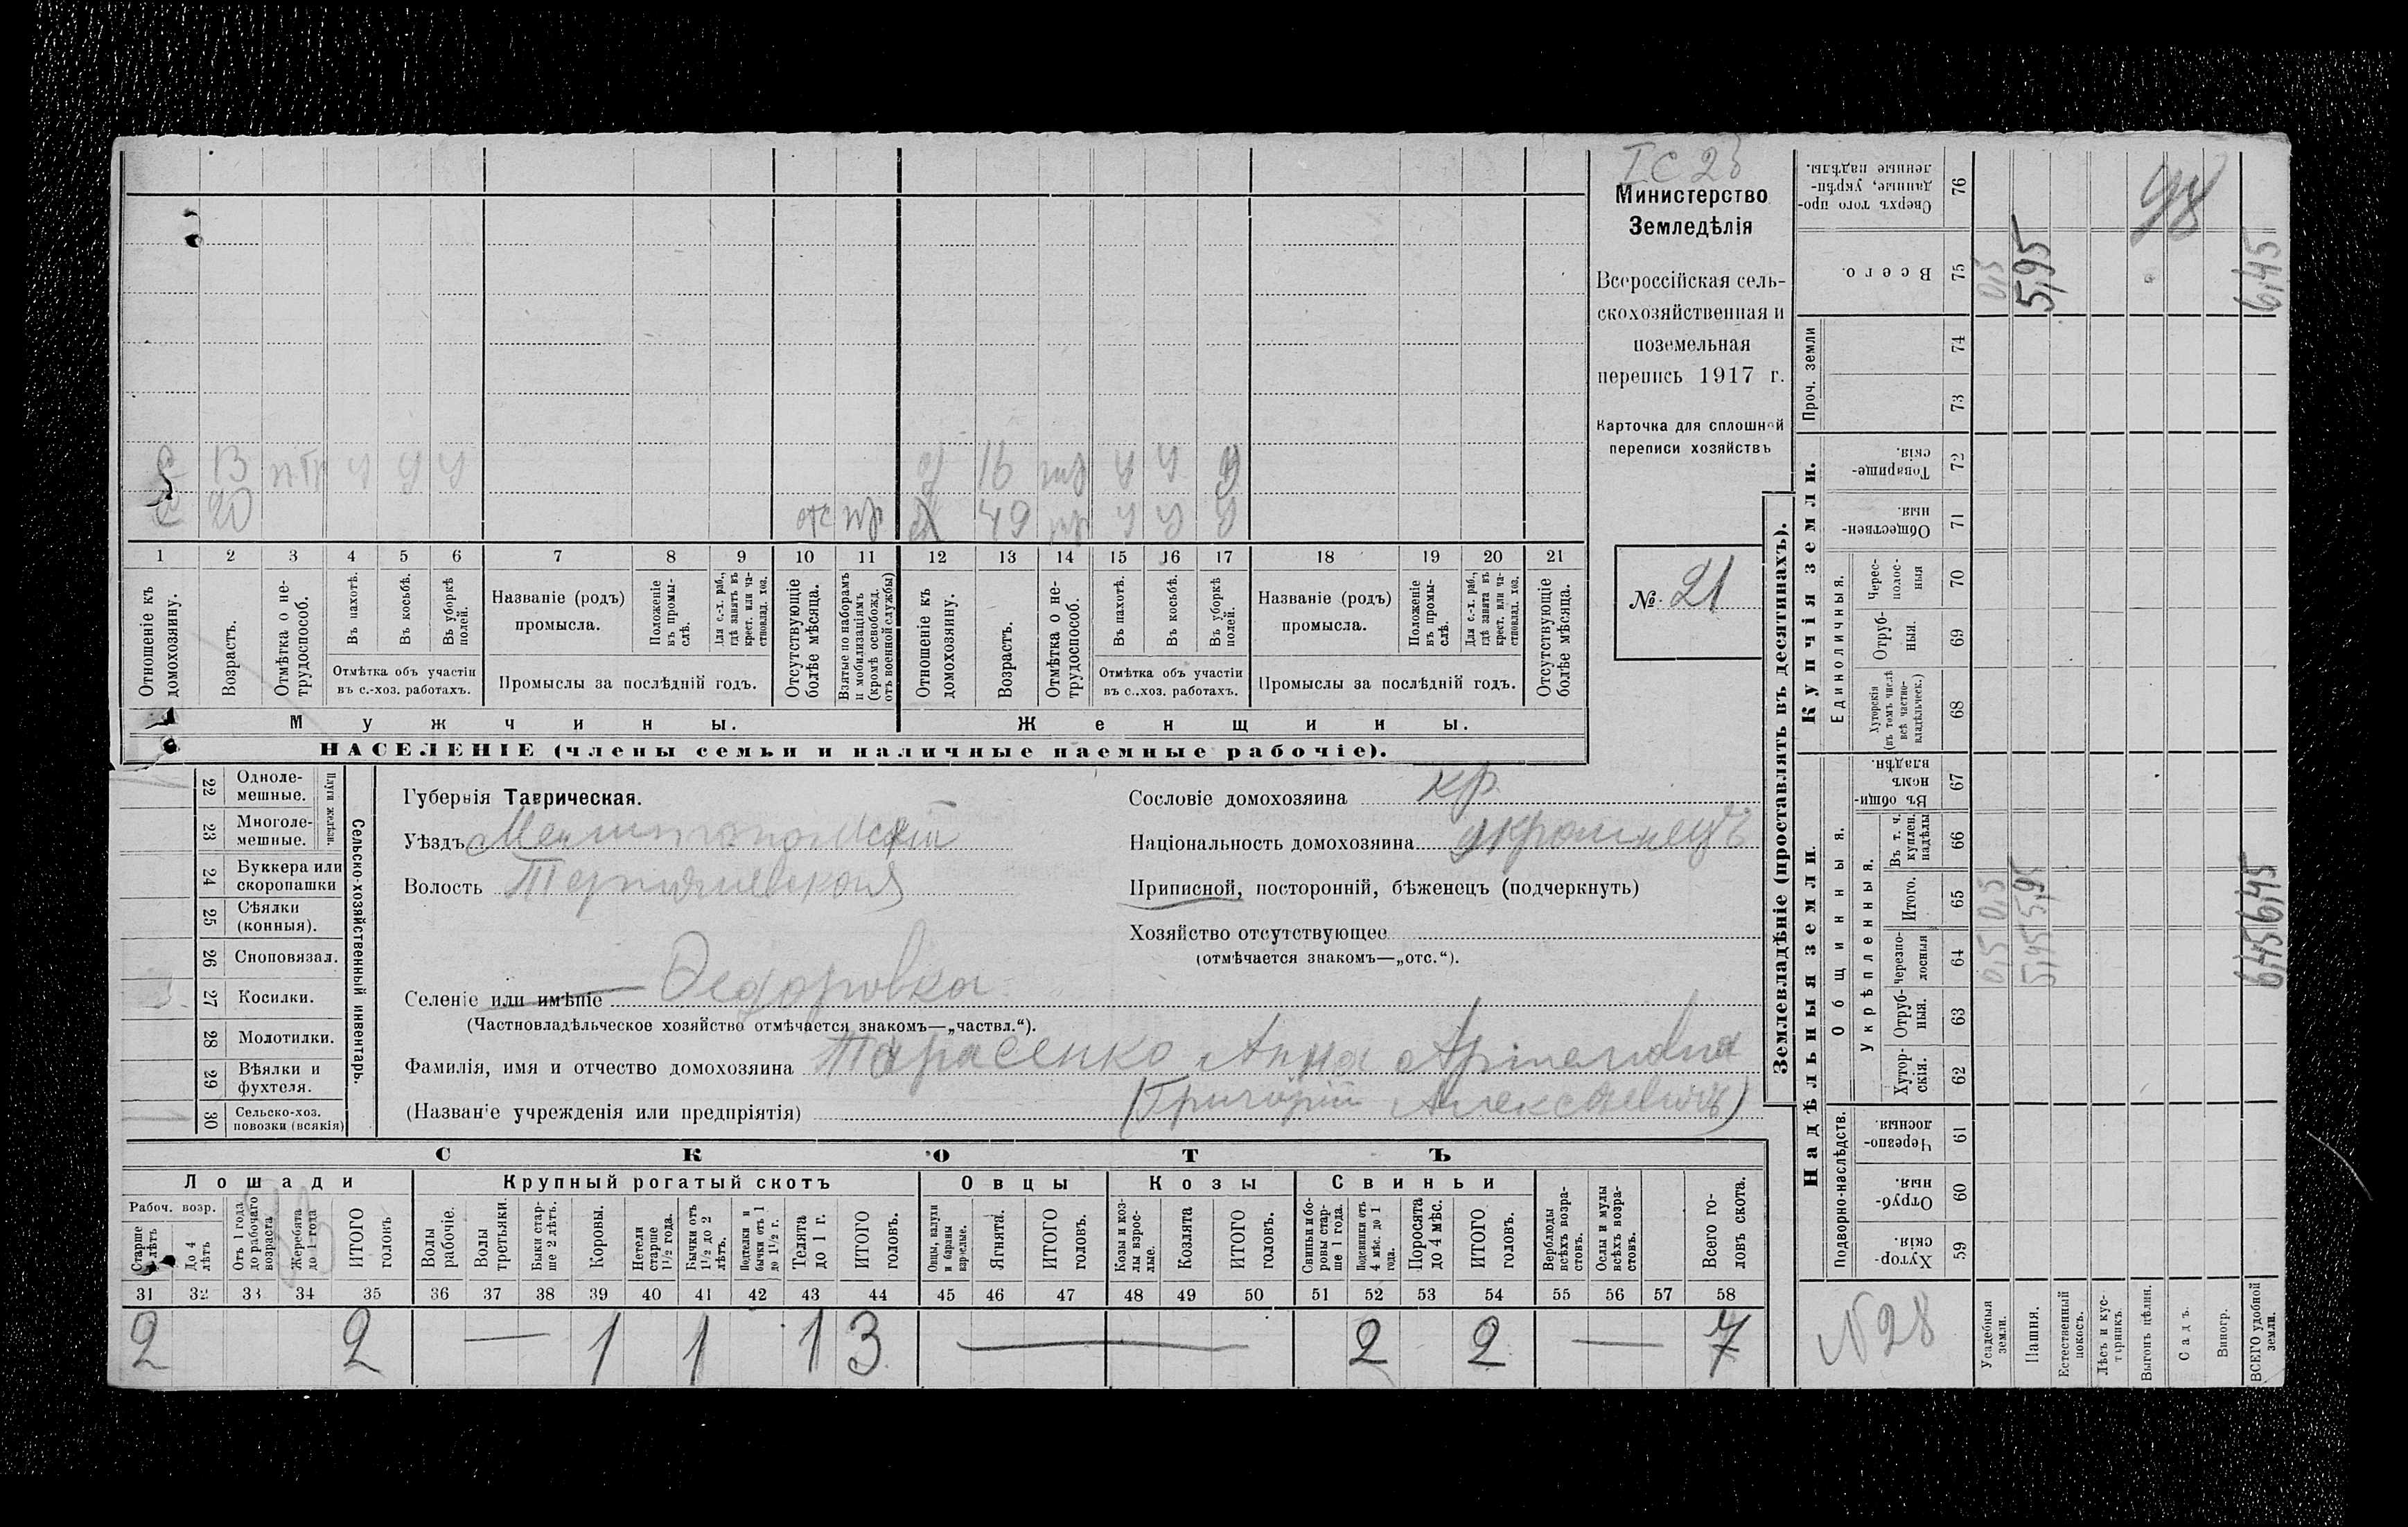 I С 23
Министерство
Земледѣлія
Всероссійская сель-
скохозяйственная и
поземельная
перепись 1917 г.
Карточка для сплошной
переписи хозяйствъ
№ 21
С 13 п тр у у у
С 20 отс
16 у у у
49 у у у
1 2 3 4 5 6 7 8 9 10 11 12 13 14 15 16 17 18 19 20 21
Отношеніе къ домохозяину.
Возрастъ.
Отмѣтка о не-трудоспособ.
Въ пахотѣ.
Въ косьбѣ.
Въ уборкѣ полей.
Отмѣтка объ участіи
въ с.-хоз. работахъ.
Названіе (родъ)
промысла.
Положеніе въ промы-слѣ.
Для с.-х. раб., гдѣ занятъ въ крест. или ча-стновлад. хоз.
Промыслы за послѣдній годъ.
Отсутствующіе болѣе мѣсяца.
Взятые по наборамъ и мобилизаціямъ (кромѣ освобожд. отъ военной службы)
Отношеніе къ домохозяину.
Возрастъ.
Отмѣтка о не-трудоспособ.
Въ пахотѣ.
Въ косьбѣ.
Въ уборкѣ полей.
Отмѣтка объ участіи
въ с.-хоз. работахъ.
Названіе (родъ)
промысла.
Положеніе въ промы-слѣ.
Для с.-х. раб., гдѣ занята въ крест. или ча-стновлад. хоз.
Промыслы за послѣдній годъ.
Отсутствующіе болѣе мѣсяца.
Мужчины.
Женщины.
НАСЕЛЕНІЕ (члены семьи и наличные наемные рабочіе).
Сельско-хозяйственный инвентарь.
Плуги желѣзн.
22 Одноле-мешные.
23 Многоле-мешные.
24 Буккера или скоропашки
25 Сѣялки (конныя).
26 Споповязал.
27 Косилки.
28 Молотилки.
29 Вѣялки и фухтеля.
30 Сельско-хоз. повозки (всякія)
Губернія Таврическая.
Уѣздъ Мелитопольскій
Волость
Сословіе домохозяина кр.
Національность домохозяина украинецъ
Приписной, посторонній, бѣженецъ (подчеркнуть)
Хозяйство отсутствующее
(отмѣчается знакомъ—„отс.“).
Селеніе или имѣніе Федоровка
(Частновладѣльческое хозяйство отмѣчается знакомъ—„частвл.“).
Фамилія, имя и отчество домохозяина Тарасенко Анна
(Названіе учрежденія или предпріятія) (Григорій Алексѣевичъ)
СКОТЪ
Лошади
Крупный рогатый скотъ
Овцы
Козы
Свиньи
Рабоч. возр.
Старше 4 лѣтъ
До 4 лѣтъ
Отъ 1 года до рабочаго возраста
Жеребята до 1 года
ИТОГО головъ
Волы рабочіе.
Волы третьяки.
Быки стар-ше 2 лѣтъ.
Коровы.
Нетели старше 1½ года.
Бычки отъ 1½ до 2 лѣтъ.
Подтелки и бычки отъ 1 до 1½ г.
Телята до 1 г.
ИТОГО головъ.
Овцы, валухи и бараны взрослые.
Ягнята.
ИТОГО головъ.
Козы и коз-лы взрос-лые.
Козлята
ИТОГО головъ.
Свиньи и бо-ровы стар-ше 1 года.
Подсвинки отъ 4 мѣс. до 1 года.
Поросята до 4 мѣс.
ИТОГО головъ.
Верблюды всѣхъ возра-стовъ.
Ослы и мулы всѣхъ возра-стовъ.
Всего го-ловъ скота.
31 32 33 34 35 36 37 38 39 40 41 42 43 44 45 46 47 48 49 50 51 52 53 54 55 56 57 58
2 2 — 1 1 1 3 — 2 2 — 7
Землевладѣніе (проставлять въ десятинахъ).
Купчія земли.
Надѣльныя земли.
Проч. земли
Единоличныя.
Общинныя.
Укрѣпленныя.
Подворно-наслѣдств.
76 Сверхъ того про-данные, укрѣп-ленные надѣлы.
75 Всего.
74
73
72 Товарище-скія.
71 Обществен-ныя.
70 Черес-полос-ныя
69 Отруб-ныя.
68 Хуторскія (въ томъ числѣ всѣ частно-владѣльческ.)
67 Въ общи-номъ владѣн.
66 Въ т. ч. куплен. надѣлы
65 Итого.
64 Черезпо-лосныя
63 Отруб-ныя.
62 Хутор-скія.
61 Черезпо-лосныя.
60 Отруб-ныя.
59 Хутор-скія.
N 28
Усадебныя земли.
Пашня.
Естественный покосъ.
Лѣсъ и кус-тарникъ.
Выгонъ цѣлин.
Садъ.
Виногр.
ВСЕГО удобной земли.
0,5 0,5 0,5
5,95 5,95 5,95
6,45 6,45 6,45
98